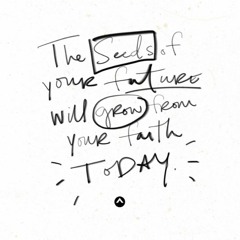 The Seeds of
your future
will grow from
your faith
TODAY.